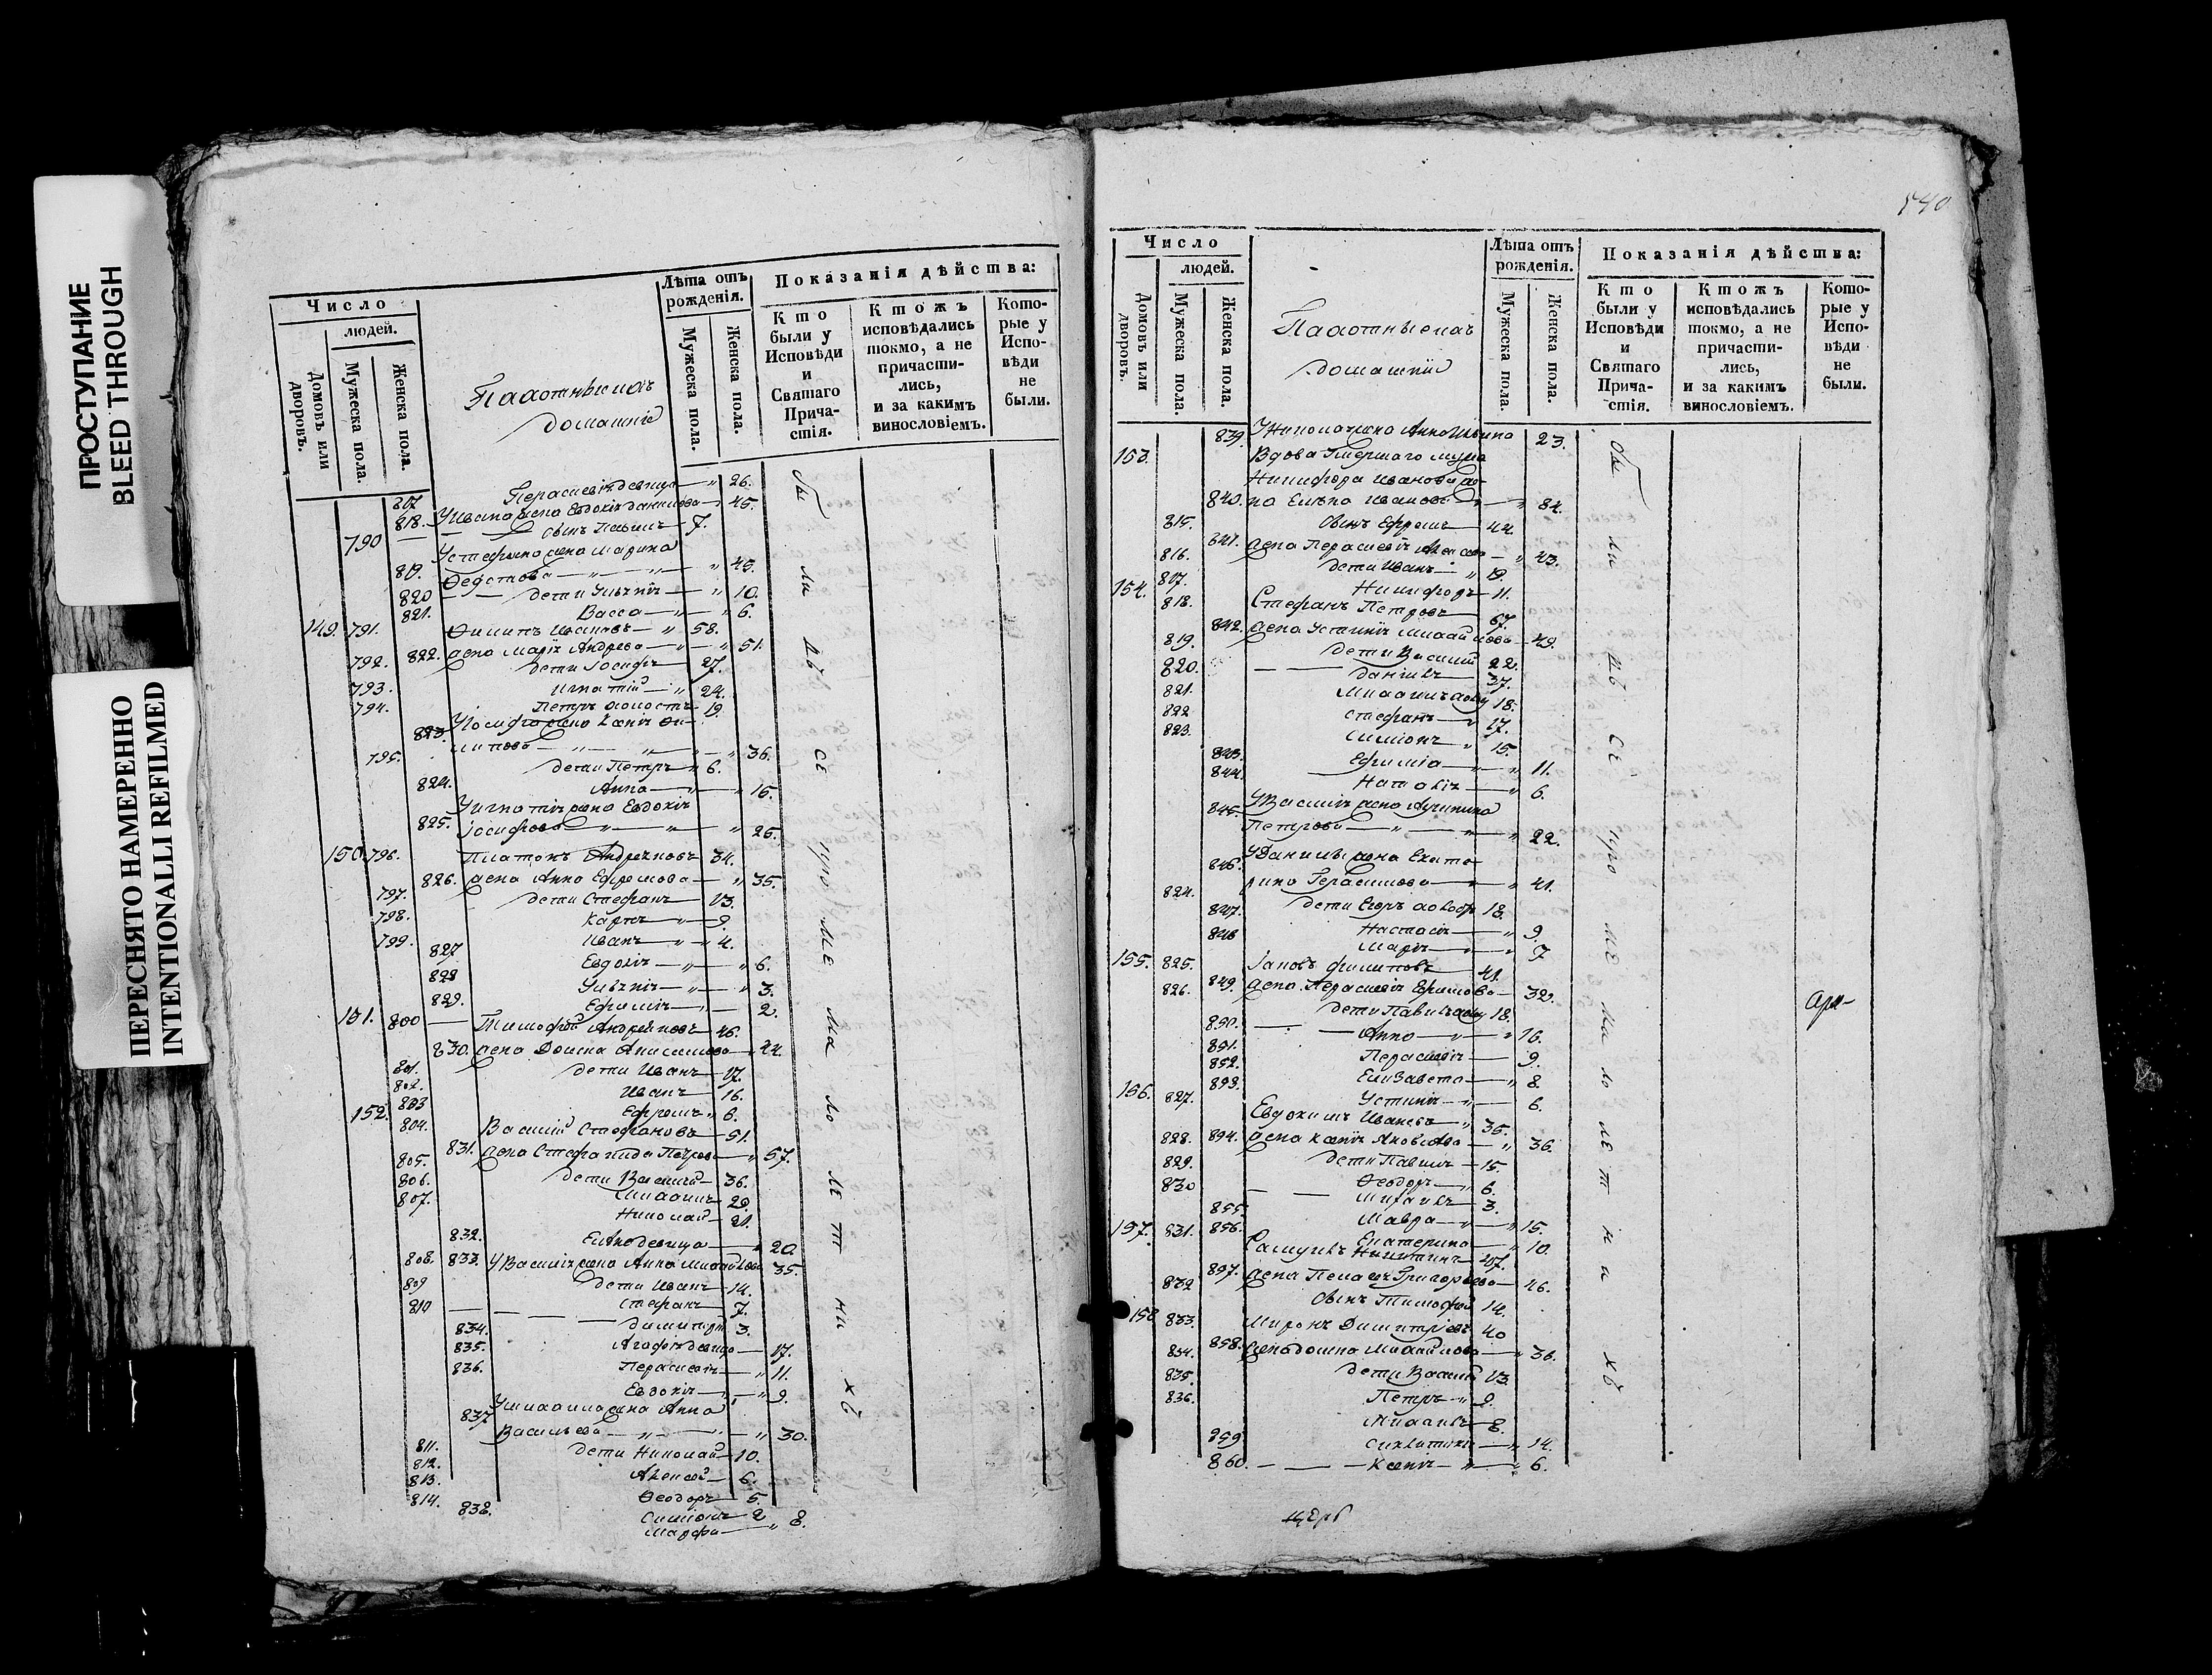 ПРОСТУПАНИЕ
BLEED THROUGH
ПЕРЕСНЯТО НАМЕРЕННО
INTENTIONALLI REFILMED
Число
людей.
Домовъ или дворовъ.
Мужеска пола.
Женска пола.
домашніе
Лѣта отъ рожденія.
Мужеска пола.
Женска пола.
Показанія дѣйства:
Кто были у Исповѣди и Святаго Прича- стія.
Ктожъ исповѣдались токмо, а не причасти- лись, и за какимъ винословіемъ.
Кото- рые у Испо- вѣди не были.
817 Перасковія девица 26.
818. У Ивана жена Евдокія Данилова 45.
790 сынъ Павелъ 7.
У Стефана жена Марина
819. Федотова 43.
820 дети Улянія 10.
821. Васса 6.
149. 791. Филипъ Ивановъ 58.
822. жена Марія Андрева 51.
792. дети Іосифъ 27.
793. Игнатій 24.
794. Петръ холостъ 19.
823. У Іосифа жена Ксенія Фи-
липова 36.
795. дети Петръ 6.
824. Анна 16.
У Игнатія жена Евдокія
825. Іосифова 26.
150. 796. Платонъ Андреяновъ 34.
826. жена Анна Ефремова 35.
797. дети Стефанъ 13.
798. Карпъ 9.
799. Иванъ 4.
827 Евдокія 6.
828 Улянія 3.
829. Ефимія 2.
151. 800 Тимофей Андреяновъ 46.
830. жена Домна Анисимова 44.
801. дети Иванъ 17.
802. Иванъ 16.
803 Ефремъ 6.
152. 804. Василій Стефановъ 51.
831. жена Стефанида Петрова 57.
805. дети Василій 36.
806. Михаилъ 29.
807. Николай 21.
832. девица 20.
833. У Василія жена Анна Михайлова 35.
808. дети Иванъ 14.
809 Стефанъ 7.
810 Димитрій 3.
834. Агафія девица 17.
835. Перасковія 11.
836. Евдокія 9.
У Михаила жена Анна
837 Васильева 30.
811. дети Николай 10.
812. Алексей 6.
813. Феодоръ 5.
814. Симіонъ 2
838. Марфа 8.
540
Число
людей.
Домовъ или дворовъ.
Мужеска пола.
Женска пола.
домашніи
Лѣта отъ рожденія.
Мужеска пола.
Женска пола.
Показанія дѣйства:
Кто были у Исповѣди и Святаго Прича- стія.
Ктожъ исповѣдались токмо, а не причасти- лись, и за какимъ винословіемъ.
Кото- рые у Испо- вѣди не были.
839. У Николая жена Анна 23.
153. Вдова Умершаго мужа
Никифора Иванова же-
840. на Елена Иванова 84.
815. сынъ Ефремъ 44.
841. жена Перасковія 43.
816. дети Иванъ 19.
817. Никифоръ 11.
154. 818. Стефанъ Петровъ 67.
842. жена Устинія Михайлова 49.
819. дети Василій 22.
820. Даніилъ 37.
821. Михаилъ 18.
822 Стефанъ 17.
823. Симіонъ 15.
843. Ефимія 11.
844. Наталія 6.
У Василія жена Акилина
845. Петрова 22.
У Даніила жена Екате-
846. рина Герасимова 41.
824. дети Егоръ 18.
847. Настасія 9.
848 Марія 7
155. 825. Іаковъ Филиповъ 41.
849. жена Перасковія Ефимова 32.
826. дети Павелъ 18.
850. Анна 16.
851. Перасковія 9.
852. Елизавета 8.
853. Устинія 6.
156. 827. Евдокимъ Ивановъ 35.
894. жена Ксенія Яковлева 36.
828. дети Павелъ 15.
829. Феодоръ 6.
830 Михаилъ 3.
855. Мавра 15.
856. Екатерина 10.
157. 831. Самуилъ Никитинъ 47.
897. жена Пелагея Григорьева 46.
832 сынъ Тимофей 14.
158 833. Миронъ Димитріевъ 40
858. жена Домна Михайлова 36.
834. дети Василій 13.
835. Петръ 9.
836. Михаилъ 8.
859 14.
860. Ксенія 6.